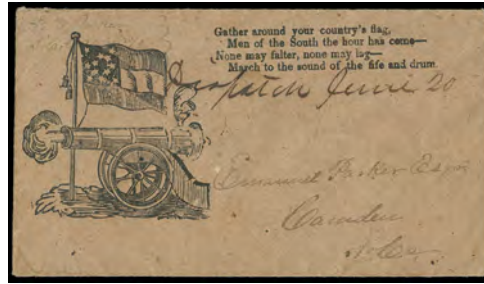 Gather around your country's flag,
Men of the South the hour has come—
None may falter, none may lag—
March to the sound of the fife and drum.
Dispatch June 20
Emanuel Parker Esqr
Camden